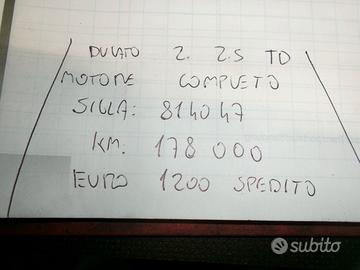 DUCATO 2. 2.5 TD
MOTORE COMPLETO
SIGLA: 814047
KM: 178 000
EURO 1200 SPEDITO
subito